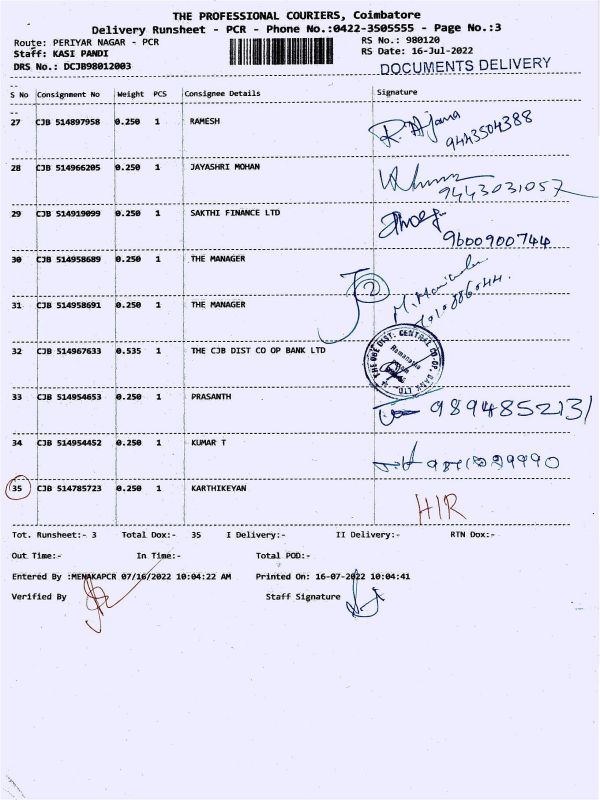 THE PROFESSIONAL COURIERS, Coimbatore
Delivery Runsheet - PCR - Phone No.:0422-3505555 - Page No.:3
Route: PERIYAR NAGAR - PCR RS No.: 980120
Staff: KASI PANDI RS Date: 16-Jul-2022
DRS No.: DCJB98012003 DOCUMENTS DELIVERY
S No Consignment No Weight PCS Consignee Details Signature
27 CJB 514897958 0.250 1 RAMESH 9443504388
28 CJB 514966205 0.250 1 JAYASHRI MOHAN 9443031057
29 CJB 514919099 0.250 1 SAKTHI FINANCE LTD 9600900744
30 CJB 514958689 0.250 1 THE MANAGER
31 CJB 514958691 0.250 1 THE MANAGER
32 CJB 514967633 0.535 1 THE CJB DIST CO OP BANK LTD
33 CJB 514954653 0.250 1 PRASANTH 9894852131
34 CJB 514954452 0.250 1 KUMAR T
35 CJB 514785723 0.250 1 KARTHIKEYAN HIR
Tot. Runsheet:- 3 Total Dox:- 35 I Delivery:- II Delivery:- RTN Dox:-
Out Time:- In Time:- Total POD:-
Entered By :MENAKAPCR 07/16/2022 10:04:22 AM Printed On: 16-07-2022 10:04:41
Verified By Staff Signature